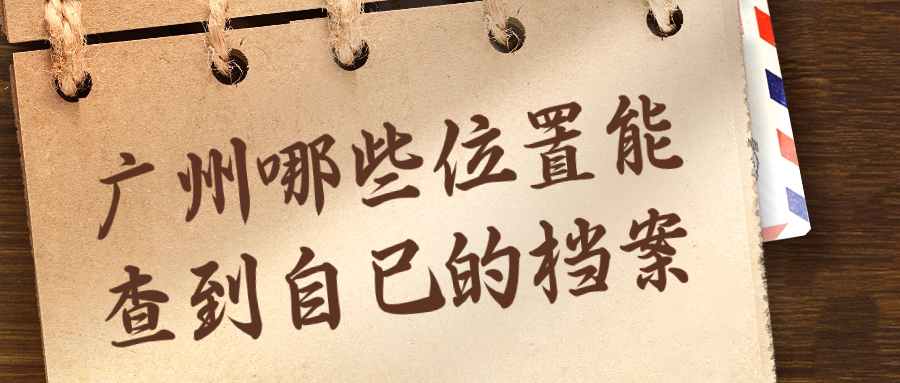 广州哪些位置能
查到自己的档案